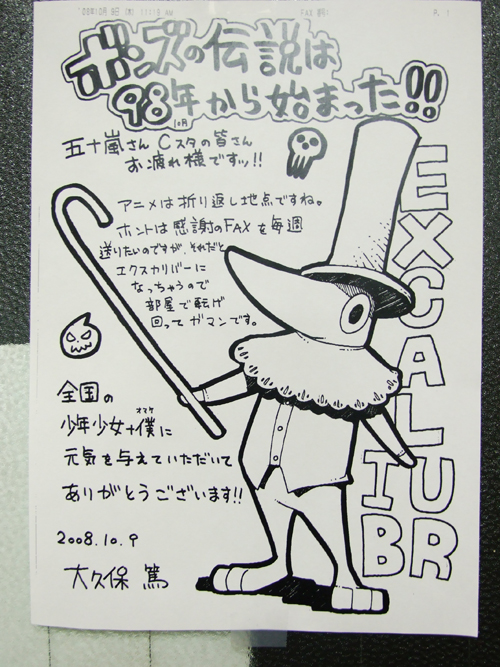 FAX
P. 1
ボンズの伝説は
98年10月から始まった!!
五十嵐さん Cスタの皆さん
お疲れ様ですッ!!
アニメは折り返し地点ですね。
ホントは感謝のFAXを毎週
送りたいのですが、それだと
エクスカリバーに
なっちゃうので
部屋で転げ
回ってガマンです。
全国の
少年少女+僕(オマケ)に
元気を与えていただいて
ありがとうございます!!
2008.10.9
大久保 篤
EXCALIBUR